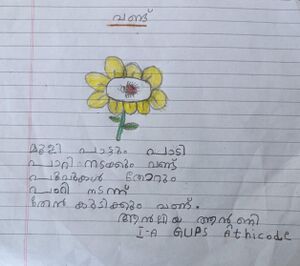 വണ്ട്
മൂളി പാട്ടും പാടി
പാറി നടക്കും വണ്ട്
പൂവുകൾ തോറും
നടന്ന്
തേൻ കുടിക്കും വണ്ട്.
ആൻലിയ ആന്റണി
I-A GUPS Athicode